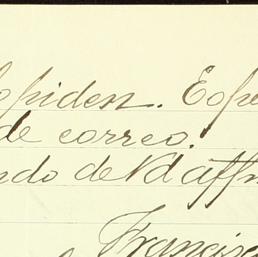 opiden. Espe
de correo.
ndo de Vd affm
Francisc